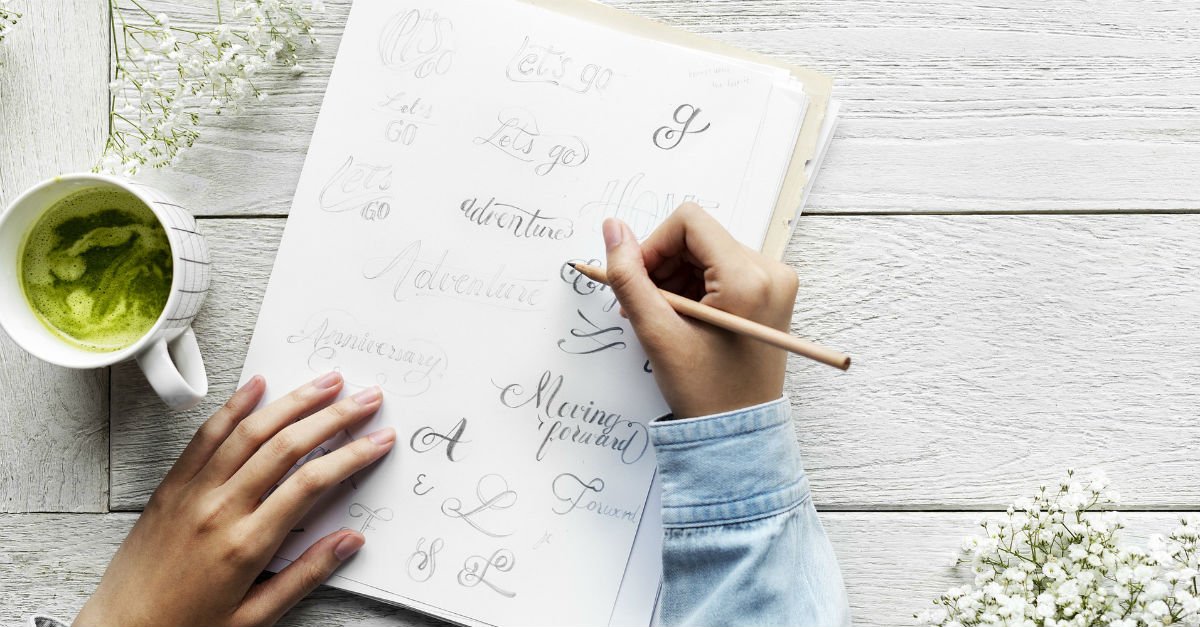 Let's go
g
Let's
GO
Let's go
Let's
GO
adventure
HOME
Adventure
Anniversary
Moving
forward
A
&
L
Forward
F
S
L